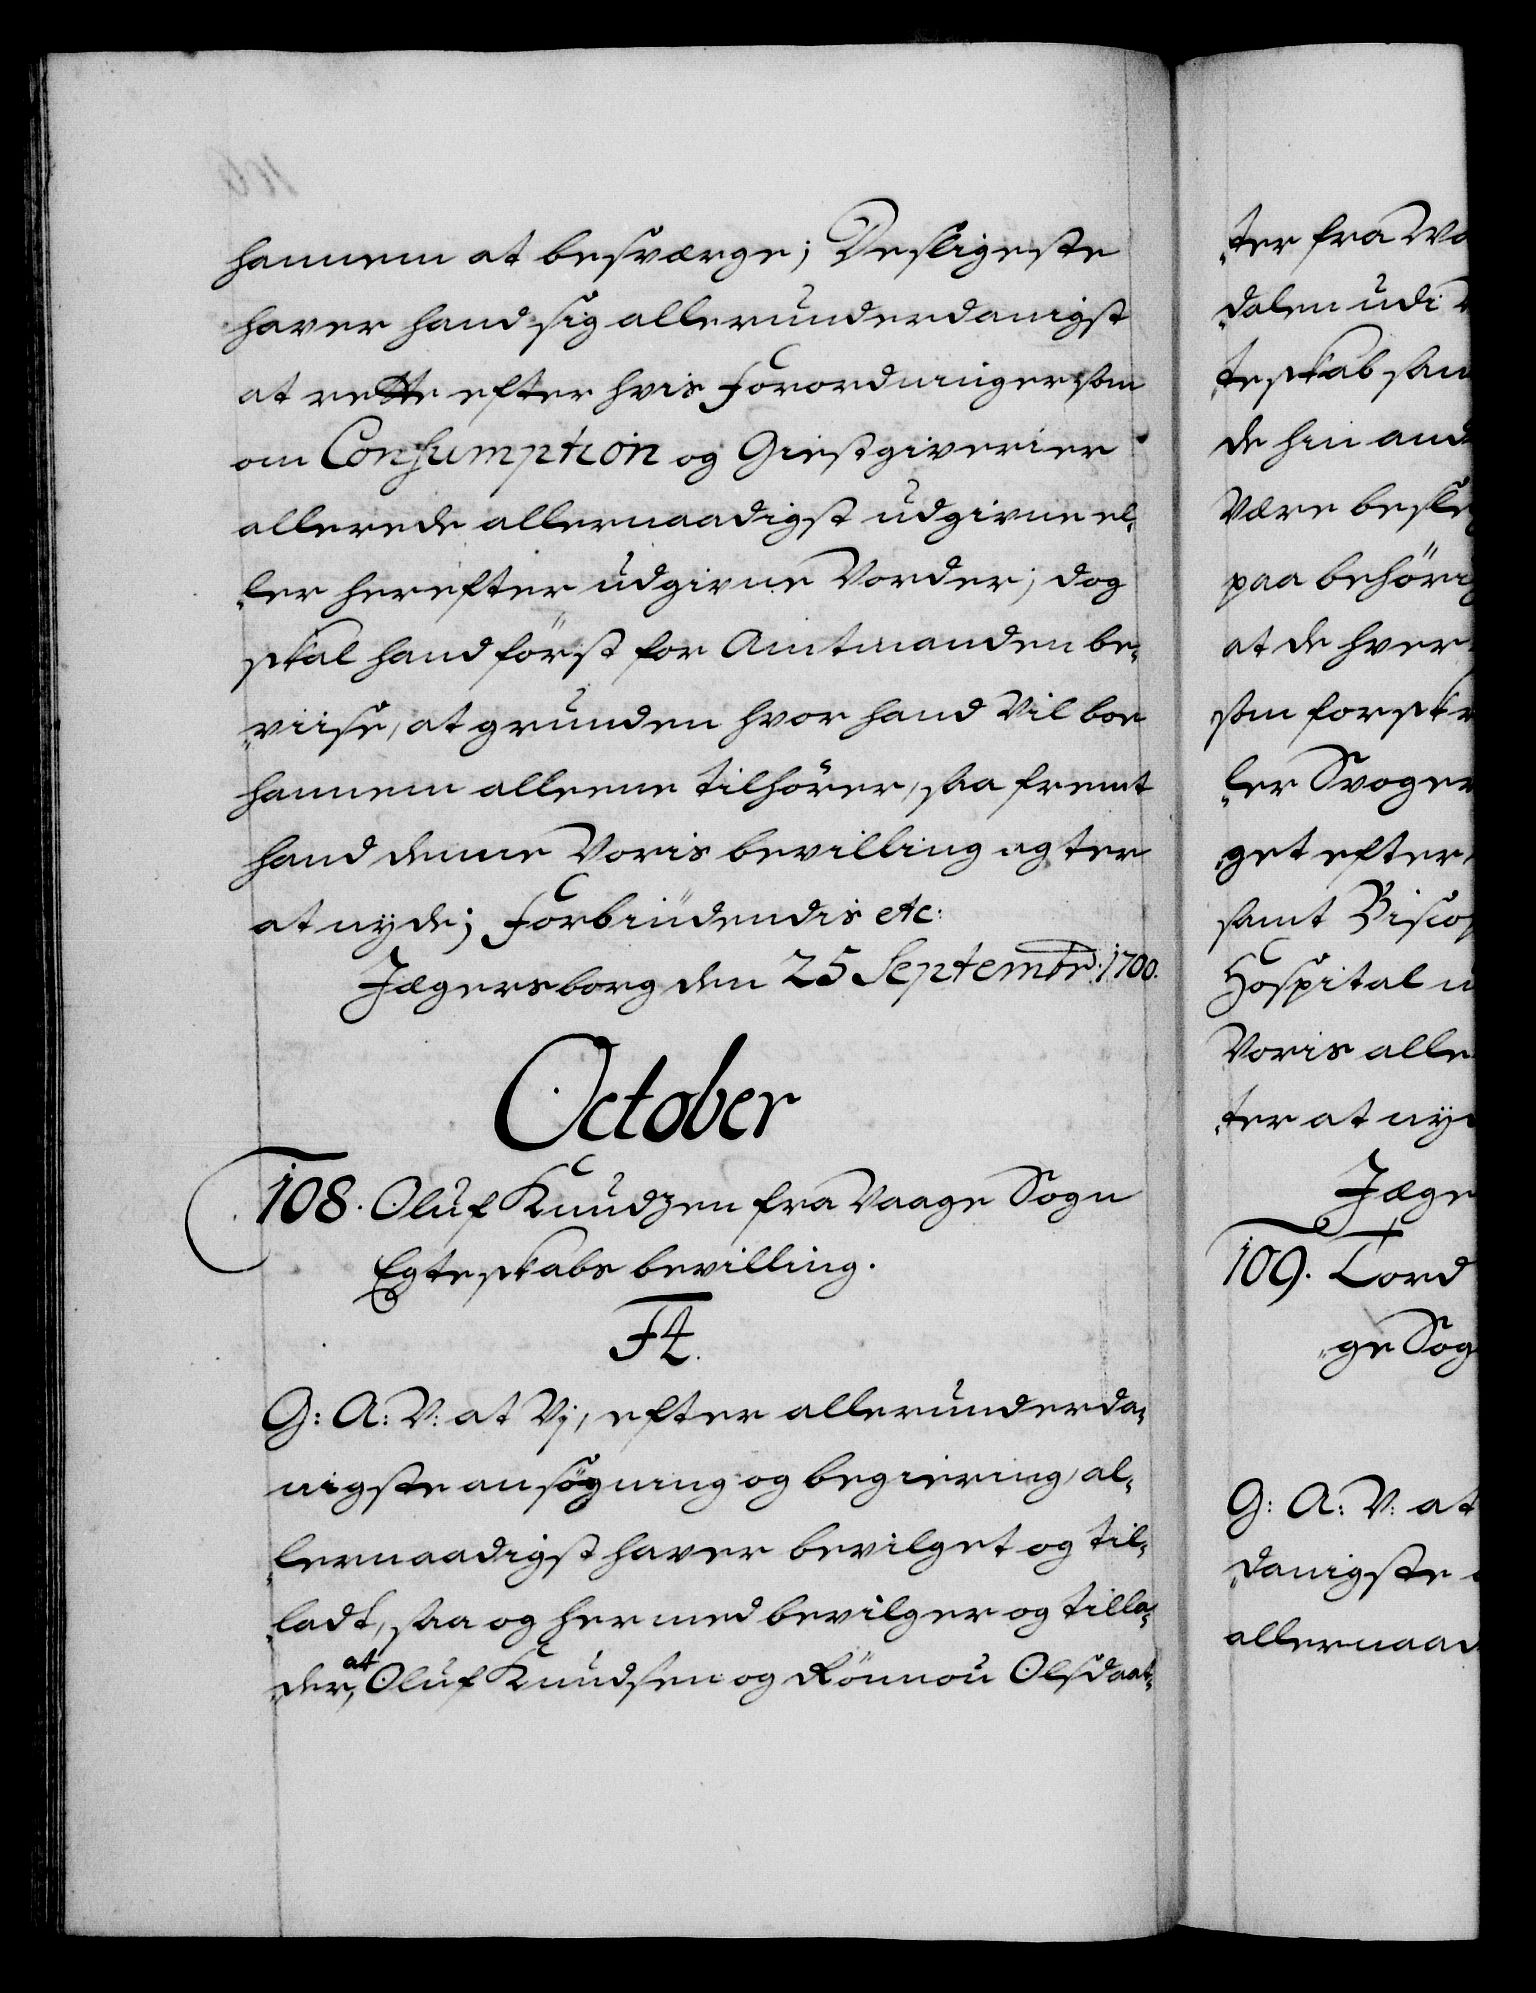 hannem at besværge; Desligeste
haver hand sig allerunderdanigst
at rette efter hvis Forordninger som
om Consumption og Giestgiverier
allerede allernaadigst udgivne el¬
ler herefter udgivne Vorder; dog
skal hand først for Amtmanden be¬
viise, at grunden hvor hand Vil boe
hannem alleene tilhører, saa fremt
hand denne Voris bevilling agter
at nyde; Forbiudendis etc:
Jægersborg den 25 Septembr: 1700.
October
108. Oluf Knudzen fra Vaage Sogn
Egteskabs bevilling.
F4.
G: A: V: at Vj, efter allerunderda¬
nigste ansøgning og begiering, al¬
lernaadigst haver bevilget og til¬
ladt, saa og hermed bevilger og tilla¬
der, at Oluf Knudsen og Rönnou Olsdaat¬
ter fra Wa
dalen udi
teskab sam
de hin and
Være besle
paa behöri
at de hver
som forskr
ler Svoger
get efter
samt Biscop
Hospital u
Voris alle
ter at nyd
Jæge
109. Tord
ge Sog
G: A: V: at
danigste
allernaad